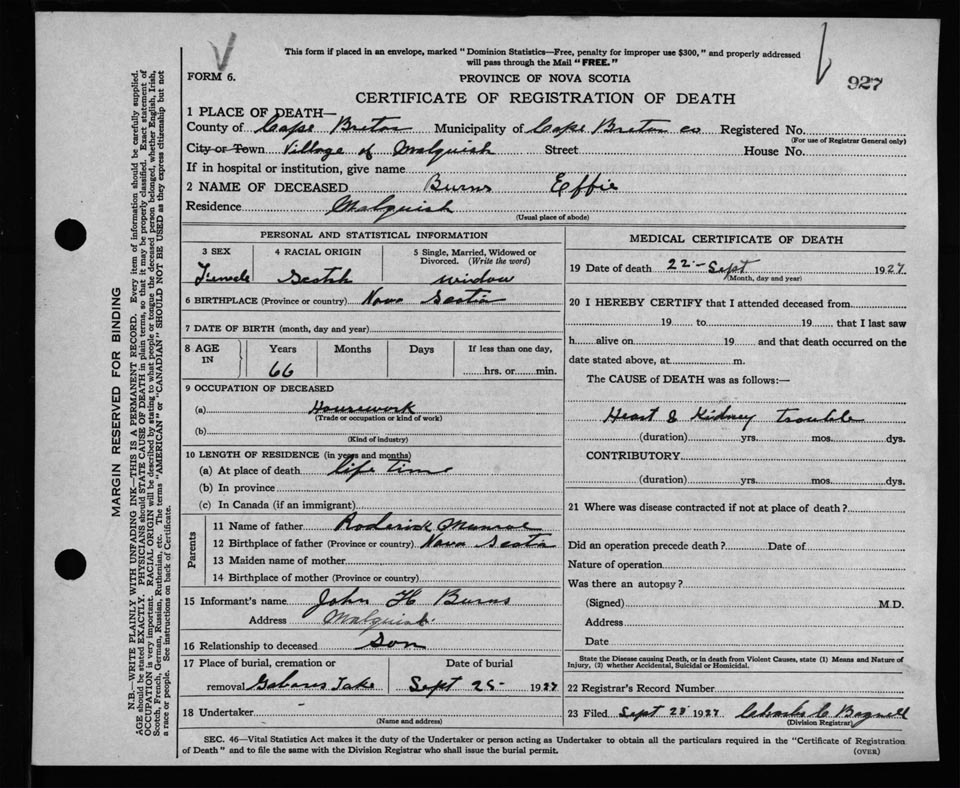 This form if placed in an envelope, marked "Dominion Statistics—Free, penalty for improper use $300," and properly addressed
will pass through the Mail "FREE."
FORM 6. PROVINCE OF NOVA SCOTIA 927
CERTIFICATE OF REGISTRATION OF DEATH
1 PLACE OF DEATH—
County of Cape Breton Municipality of Cape Breton co Registered No.
(For use of Registrar General only)
City or Town Village of Malquish Street House No.
If in hospital or institution, give name
2 NAME OF DECEASED Burns Effie
Residence Malquish
(Usual place of abode)
PERSONAL AND STATISTICAL INFORMATION
3 SEX 4 RACIAL ORIGIN 5 Single, Married, Widowed or
Divorced. (Write the word)
Female Scotch widow
6 BIRTHPLACE (Province or country) Nova Scotia
7 DATE OF BIRTH (month, day and year)
8 AGE IN Years Months Days If less than one day,
66 hrs. or min.
9 OCCUPATION OF DECEASED
(a) Housework
(Trade or occupation or kind of work)
(b)
(Kind of industry)
10 LENGTH OF RESIDENCE (in years and months)
(a) At place of death life time
(b) In province
(c) In Canada (if an immigrant)
Parents
11 Name of father Roderick Munroe
12 Birthplace of father (Province or country) Nova Scotia
13 Maiden name of mother
14 Birthplace of mother (Province or country)
15 Informant's name John H Burns
Address Malquish
16 Relationship to deceased Son
17 Place of burial, cremation or Date of burial
removal Gabarus Lake Sept 25 1927
18 Undertaker
(Name and address)
MEDICAL CERTIFICATE OF DEATH
19 Date of death 22-Sept 1927
(Month, day and year)
20 I HEREBY CERTIFY that I attended deceased from
19 to 19 that I last saw
h alive on 19 and that death occurred on the
date stated above, at m.
The CAUSE of DEATH was as follows:—
Heart & Kidney trouble
(duration) yrs. mos. dys.
CONTRIBUTORY
(duration) yrs. mos. dys.
21 Where was disease contracted if not at place of death?
Did an operation precede death? Date of
Nature of operation
Was there an autopsy?
(Signed) M.D.
Address
Date
State the Disease causing Death, or in death from Violent Causes, state (1) Means and Nature of
Injury, (2) whether Accidental, Suicidal or Homicidal.
22 Registrar's Record Number
23 Filed Sept 28 1927 Charles C Bagnell
(Division Registrar)
SEC. 46—Vital Statistics Act makes it the duty of the Undertaker or person acting as Undertaker to obtain all the particulars required in the "Certificate of Registration
of Death" and to file the same with the Division Registrar who shall issue the burial permit.
(OVER)
MARGIN RESERVED FOR BINDING
N.B.—WRITE PLAINLY WITH UNFADING INK—THIS IS A PERMANENT RECORD. Every item of information should be carefully supplied.
AGE should be stated EXACTLY. PHYSICIANS should STATE CAUSE OF DEATH in plain terms, so that it may be properly classified. Exact statement of
OCCUPATION is very important. RACIAL ORIGIN will be described by stating to what people or tongue the deceased person belonged, whether English, Irish,
Scotch, French, German, Russian, Ruthenian, etc. The terms "AMERICAN" or "CANADIAN" SHOULD NOT BE USED as they express citizenship but not
a race or people. See instructions on back of Certificate.